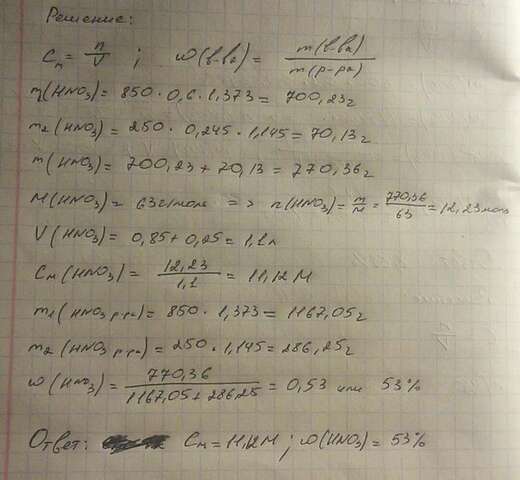 Решение:
Cм = n/V ; ω(в-ва) = m(в-ва)/m(р-ра)
m1(HNO3) = 850 · 0,6 · 1,373 = 700,23г
m2(HNO3) = 250 · 0,245 · 1,145 = 70,13г
m(HNO3) = 700,23 + 70,13 = 770,36г
M(HNO3) = 63г/моль => n(HNO3) = m/M = 770,36/63 = 12,23моль
V(HNO3) = 0,85 + 0,25 = 1,1л
Cм(HNO3) = 12,23/1,1 = 11,12 М
m1(HNO3 р-ра) = 850 · 1,373 = 1167,05г
m2(HNO3 р-ра) = 250 · 1,145 = 286,25г
ω(HNO3) = 770,36/1167,05+286,25 = 0,53 или 53%
Ответ: Cм = 11,12М ; ω(HNO3) = 53%